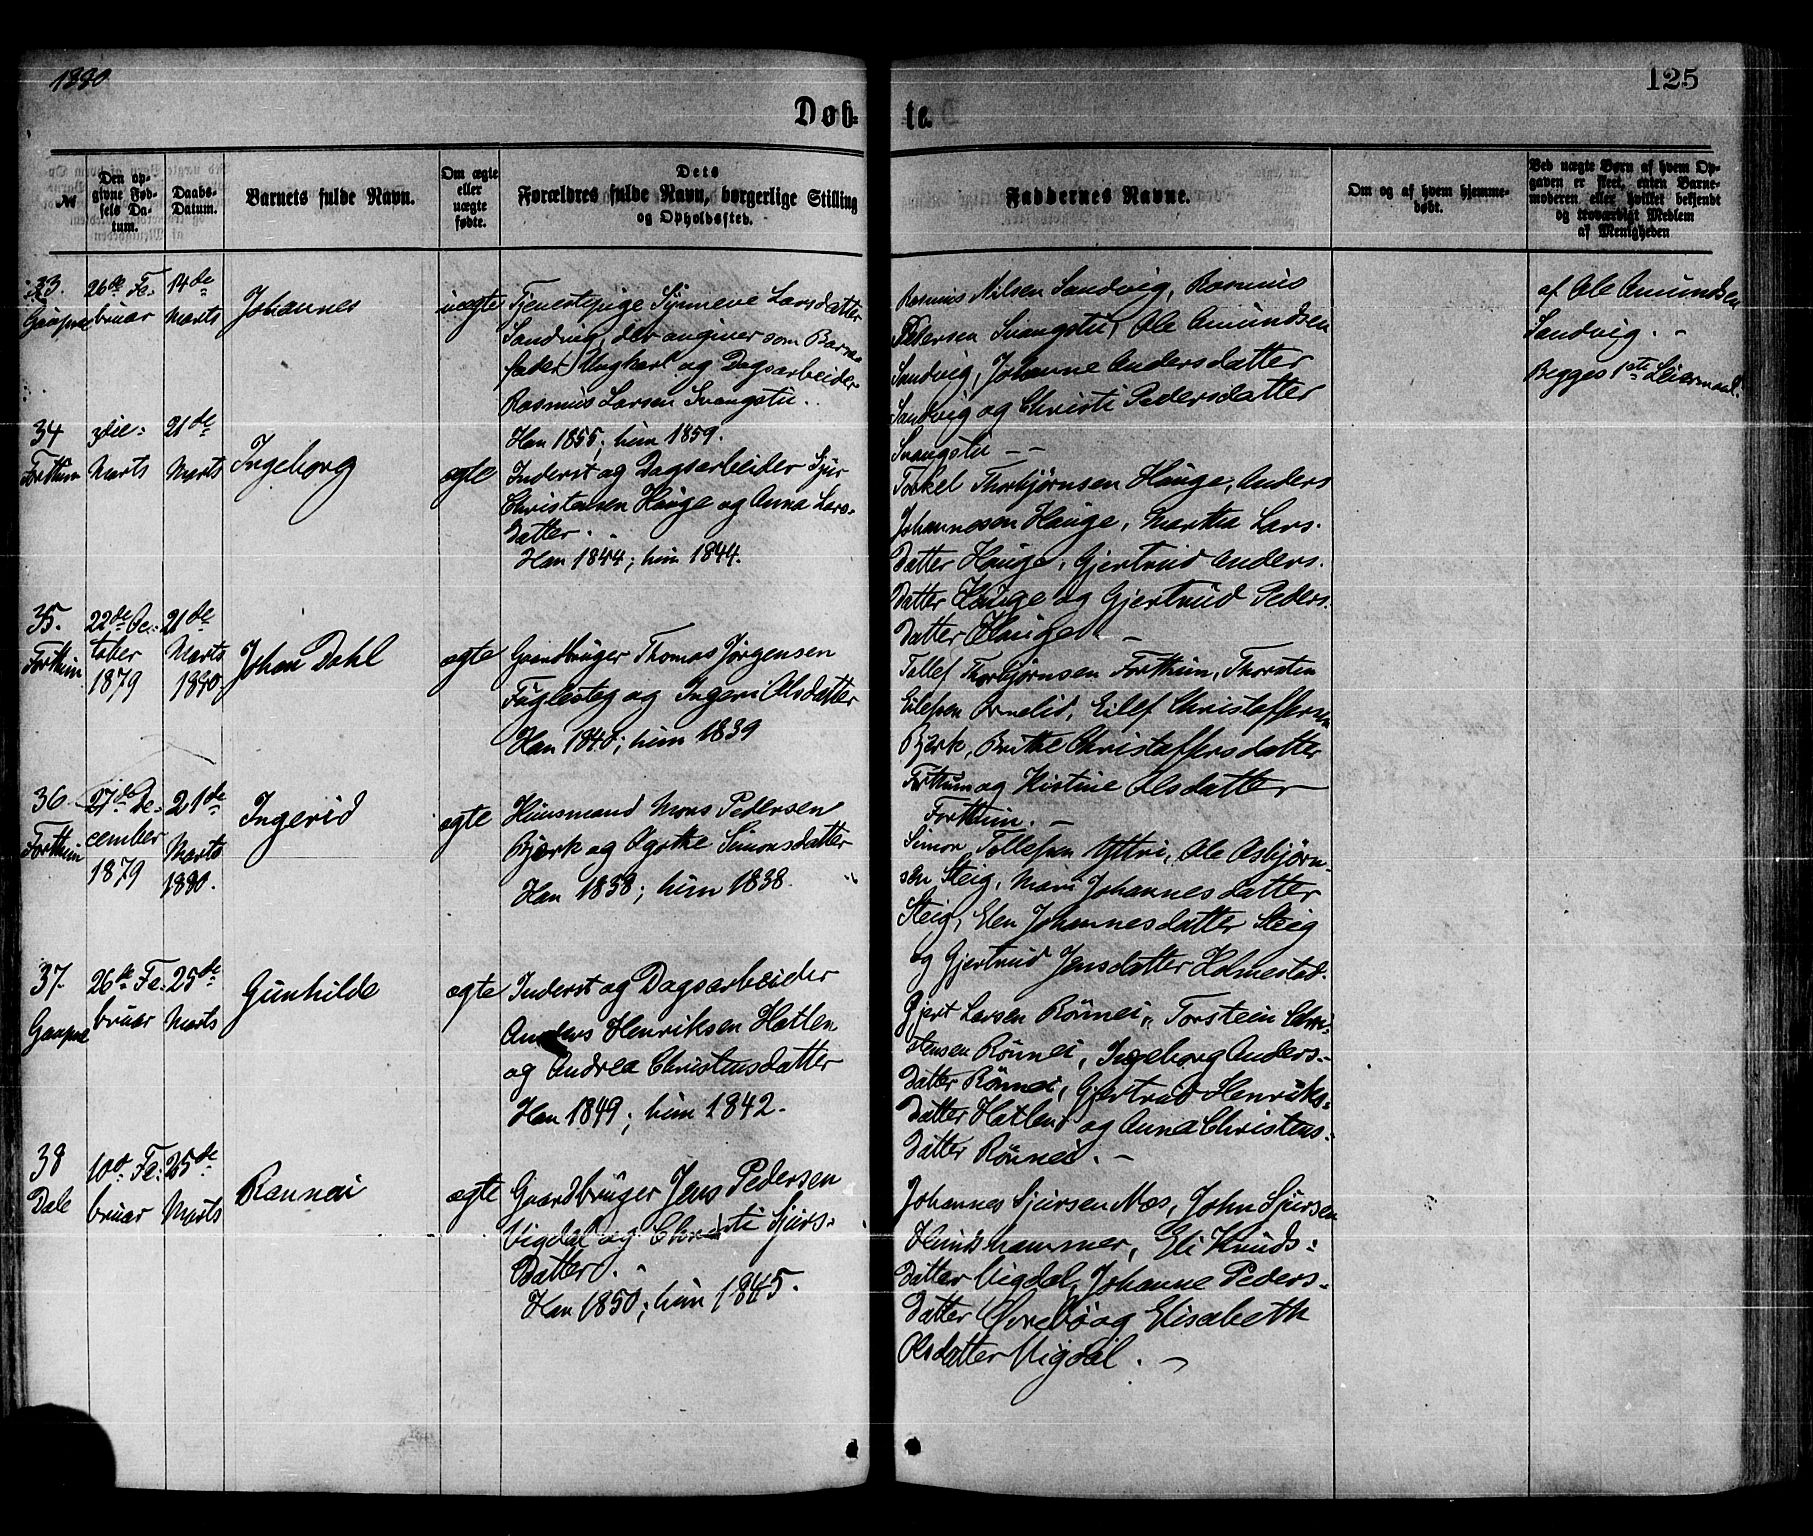 1880
125
Døb-
te.
№
Den op-
givne Fød-
sels Da-
tum.
Daabs-
Datum.
Barnets fulde Navn.
Om ægte
eller
uægte
fødte.
Dets
Forældres fulde Navn, borgerlige Stilling
og Opholdssted.
Faddernes Navne.
Om og af hvem hjemme-
døbt.
Ved uægte Børn af hvem Op-
gaven er skeet, enten Barne-
moderen eller hvilket bekjendt
og troværdigt Medlem
af Menigheden
33.
Gaupne
26de Fe-
bruar
14de
Marts
Johannes
uægte
Tjenestepige Synneve Larsdatter
Sandvig, der angiver som Barne-
fader Ungkarl og Dagsarbeider
Rasmus Larsen Svangstu.
Han 1855; hun 1859.
Rasmus Nilsen Sandvig, Rasmus
Pedersen Svangstu, Ole Amundsen
Sandvig, Johanne Andersdatter
Sandvig og Christi Pedersdatter
Svangstu - -
af Ole Amundsen
Sandvig. -
Begges 1ste Leiermaal.
34
Forthun
3die
Marts
21de
Marts
Ingeborg
ægte
Inderst og Dagsarbeider Sjur
Christensen Hauge og Anna Lars-
datter.
Han 1844; hun 1844.
Torkel Thorbjørnsen Hauge, Anders
Johannesen Hauge, Martha Lars-
datter Hauge, Gjertrud Anders-
datter Hauge og Gjertrud Peders-
datter Hauge. -
35.
Forthun
22de Oc-
tober
1879
21de
Marts
1880.
Johan Dahl
ægte
Gaardbruger Thomas Jørgensen
Fuglesteg og Ingeri Olsdatter
Han 1840; hun 1839
Tollef Thorbjørnsen Forthun, Thorsten
Eilefsen Ormelid, Eilef Christoffersen
Bjørk, Brithe Christoffersdatter
Forthun og Kristine Olsdatter
Forthun. -
36.
Forthun
27de De-
cember
1879
21de
Marts
1880.
Ingerid
ægte
Huusmand Mons Pedersen
Bjørk og Agothe Simonsdatter
Han 1838; hun 1838.
Simon Tollefsen Yttri, Ole Asbjørn-
sen Steig, Mari Johannesdatter
Steig, Elen Johannesdatter Steig
og Gjertrud Jensdatter Holmestad.
37.
Gaupne
26de Fe-
bruar
25de
Marts
Gunhilde
ægte
Inderst og Dagsarbeider
Anders Henriksen Hatlen
og Andrea Christensdatter
Han 1849; hun 1842.
Gjert Larsen Rønnei, Torstein Chri-
stensen Rønnei, Ingeborg Anders-
datter Rønnei, Gjertrud Henriks-
datter Hatlen og Anna Christens-
datter Rønnei. -
38
Dale
10de Fe-
bruar
25de
Marts
Rannei
ægte
Gaardbruger Jens Pedersen
Vigdal og Christi Sjurs-
datter.
Han 1850; hun 1845.
Johannes Sjursen Næs, John Sjursen
Hundshammer, Eli Knuds-
datter Vigdal, Johanne Peders-
datter Øvrebø og Elisabeth
Olsdatter Vigdal. -